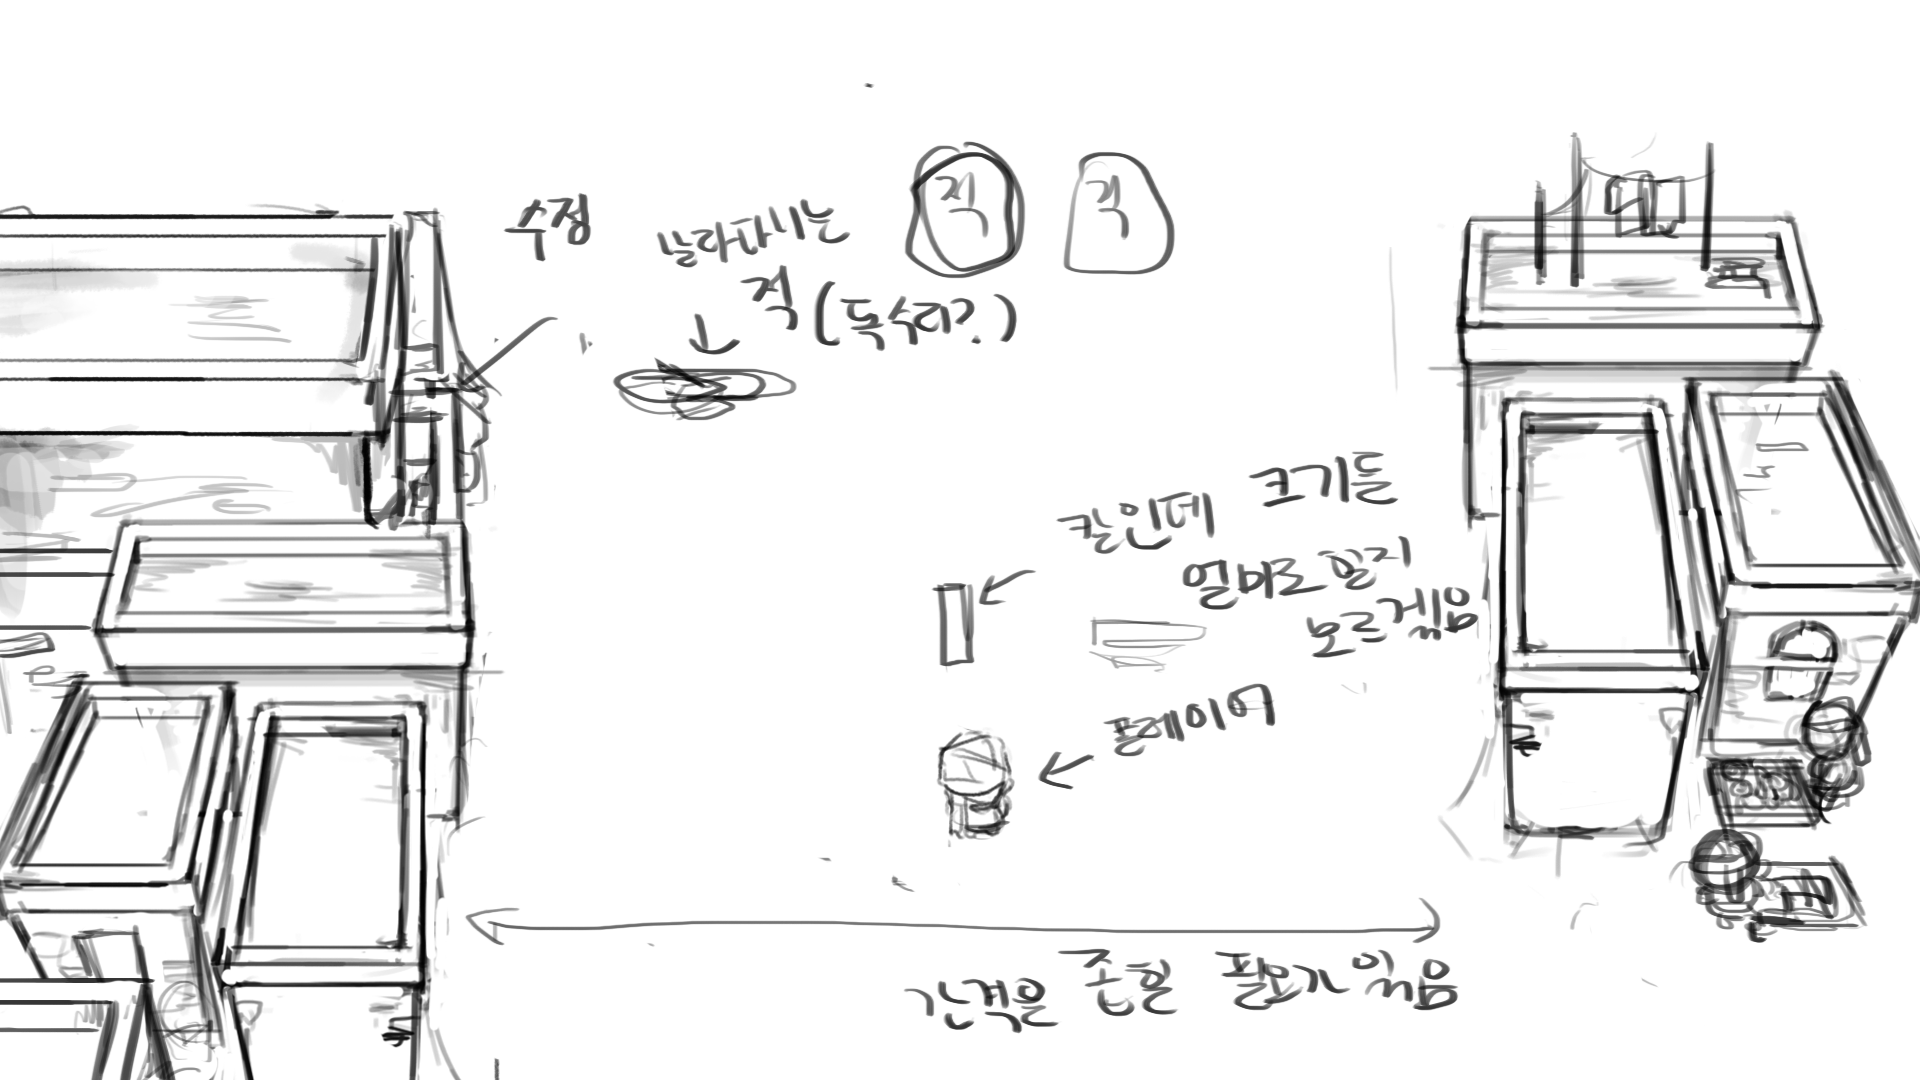 수정
날라다니는
적 (독수리?)
적
적
칼인데 크기를
얼마로 할지
모르겠음
플레이어
간격은 좁힐 필요가 있음